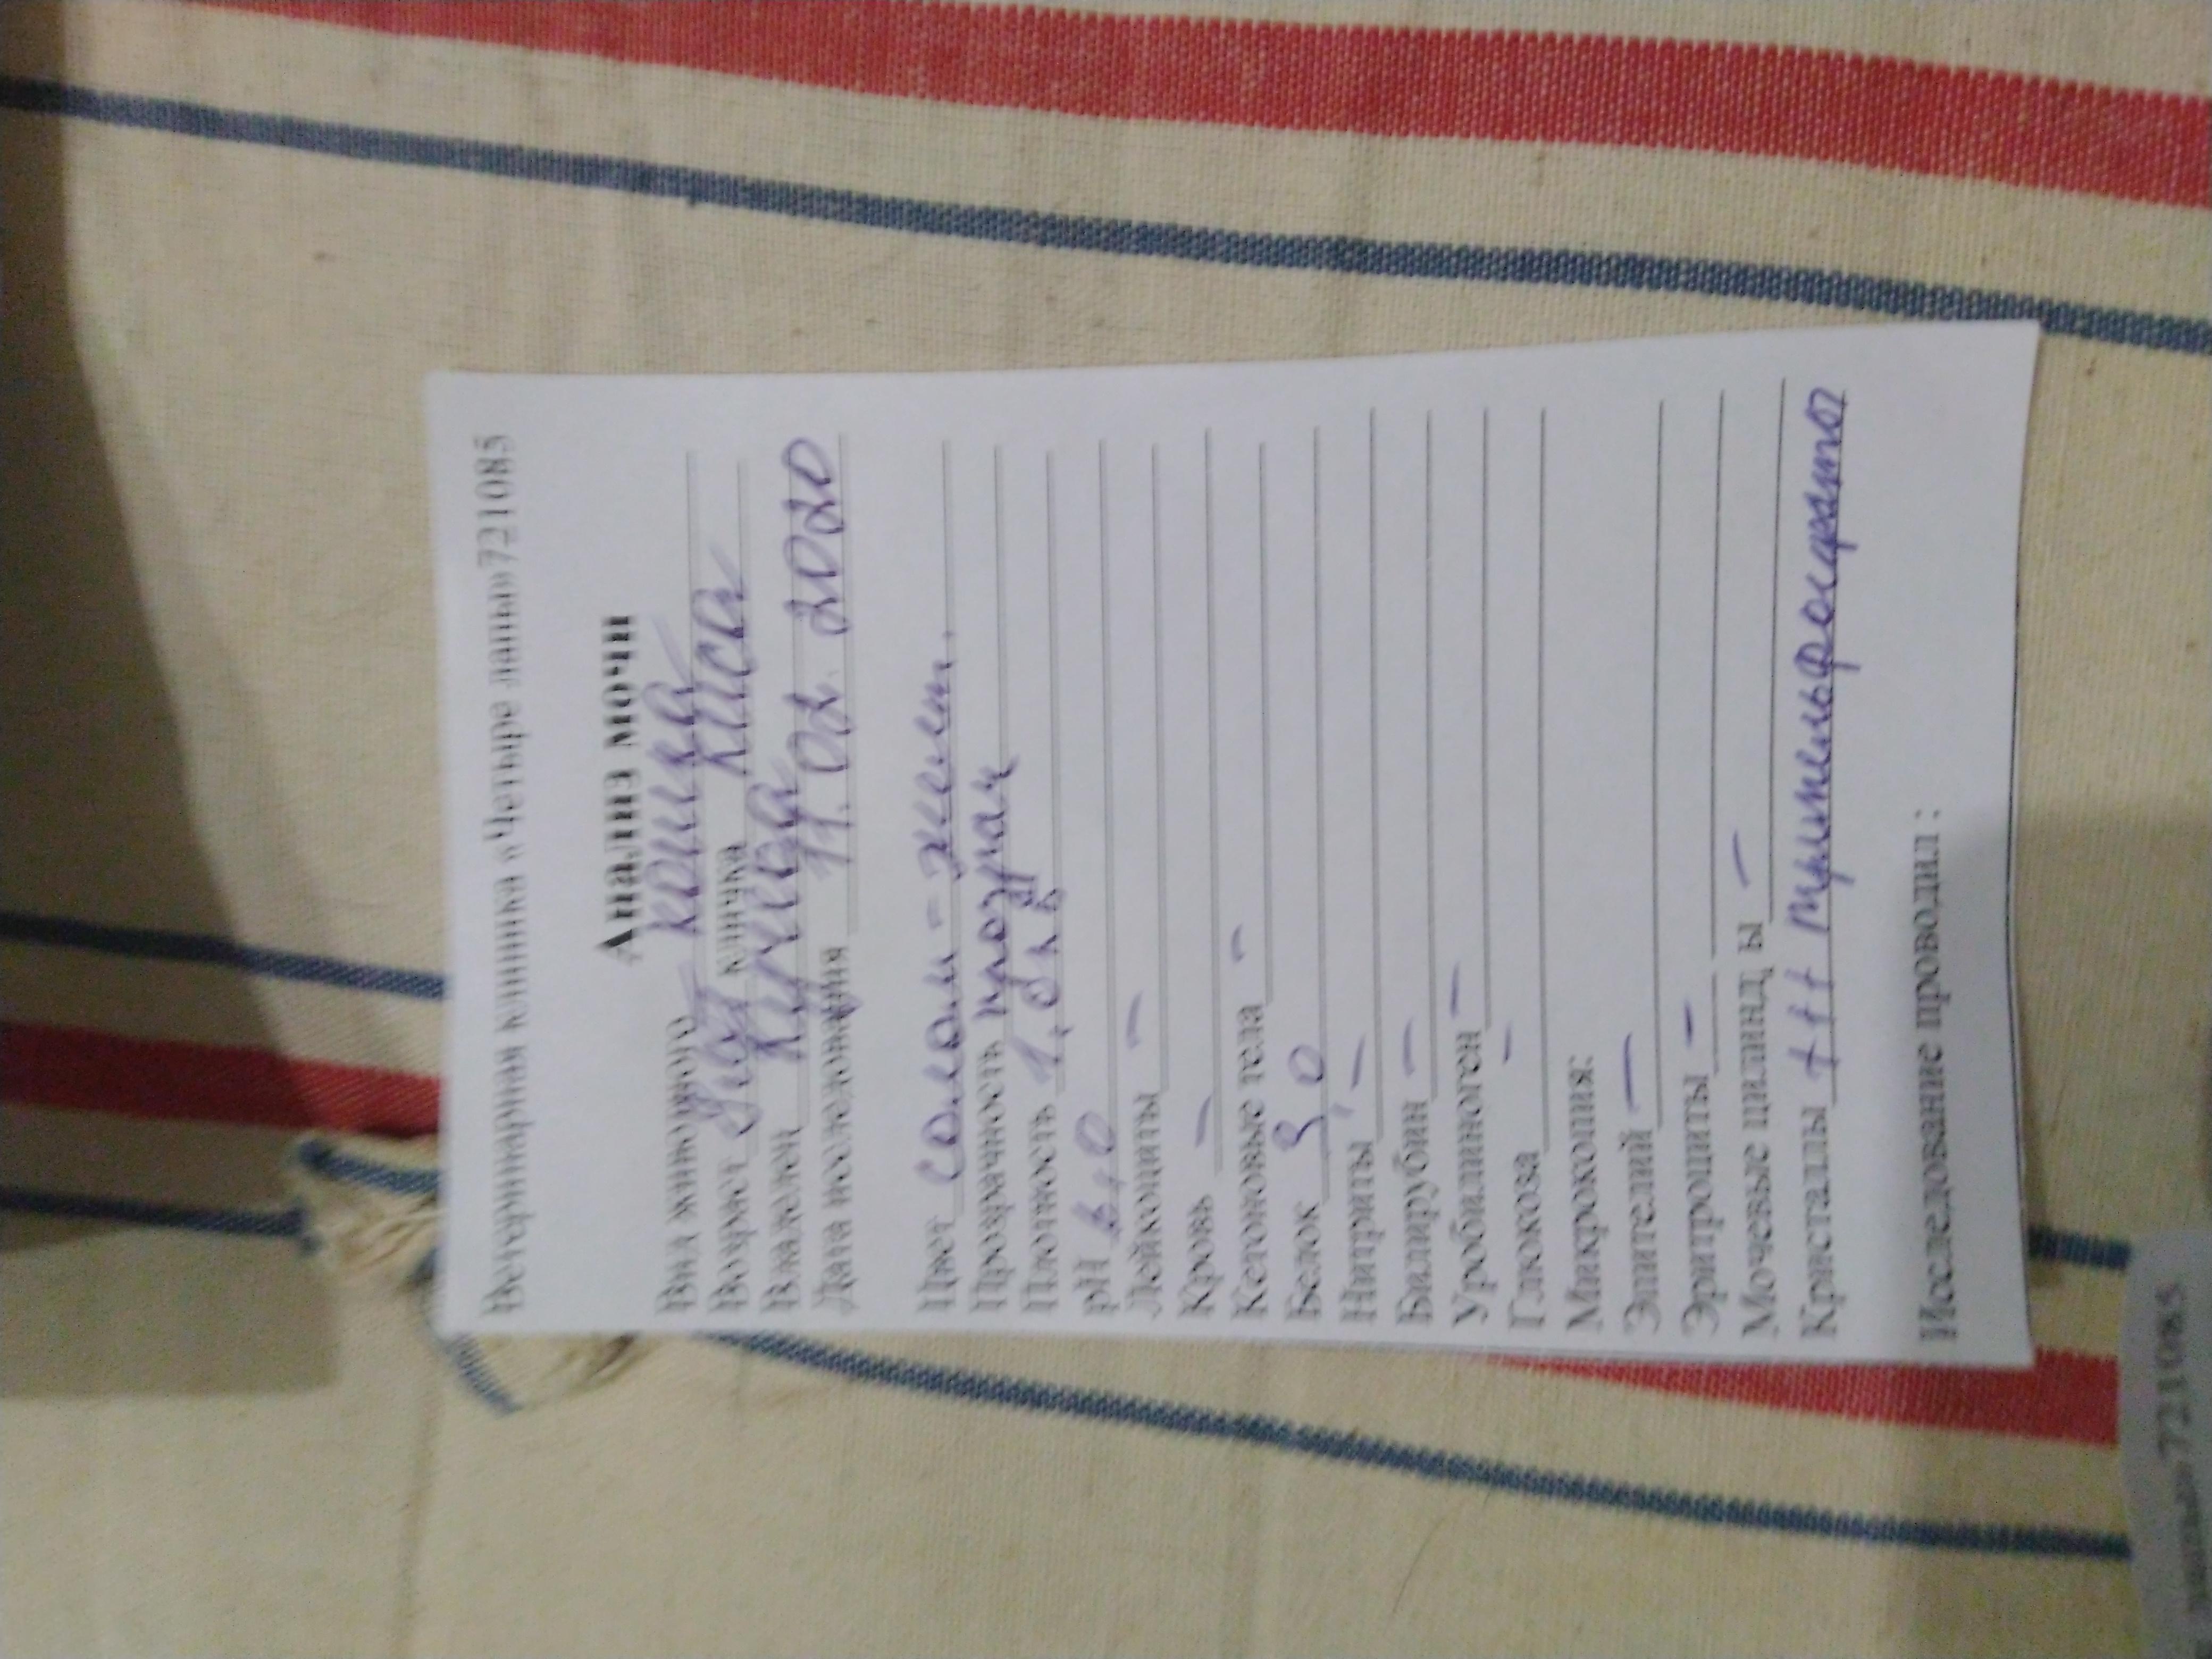 Ветеринарная клиника «Четыре лапы»7721085
Анализ мочи
Вид животного кошка
Возраст кличка Киса
Владелец
Дата исследования 11. 02. 2020
Цвет солом - желт.
Прозрачность прозрач
Плотность 1,025
pH 6,0
Лейкоциты -
Кровь -
Кетоновые тела -
Белок 30
Нитриты -
Билирубин -
Уробилиноген -
Глюкоза -
Микроскопия:
Эпителий -
Эритроциты -
Мочевые цилинд ы -
Кристаллы +++ трипельфосфаты
Исследование проводил :
7721085